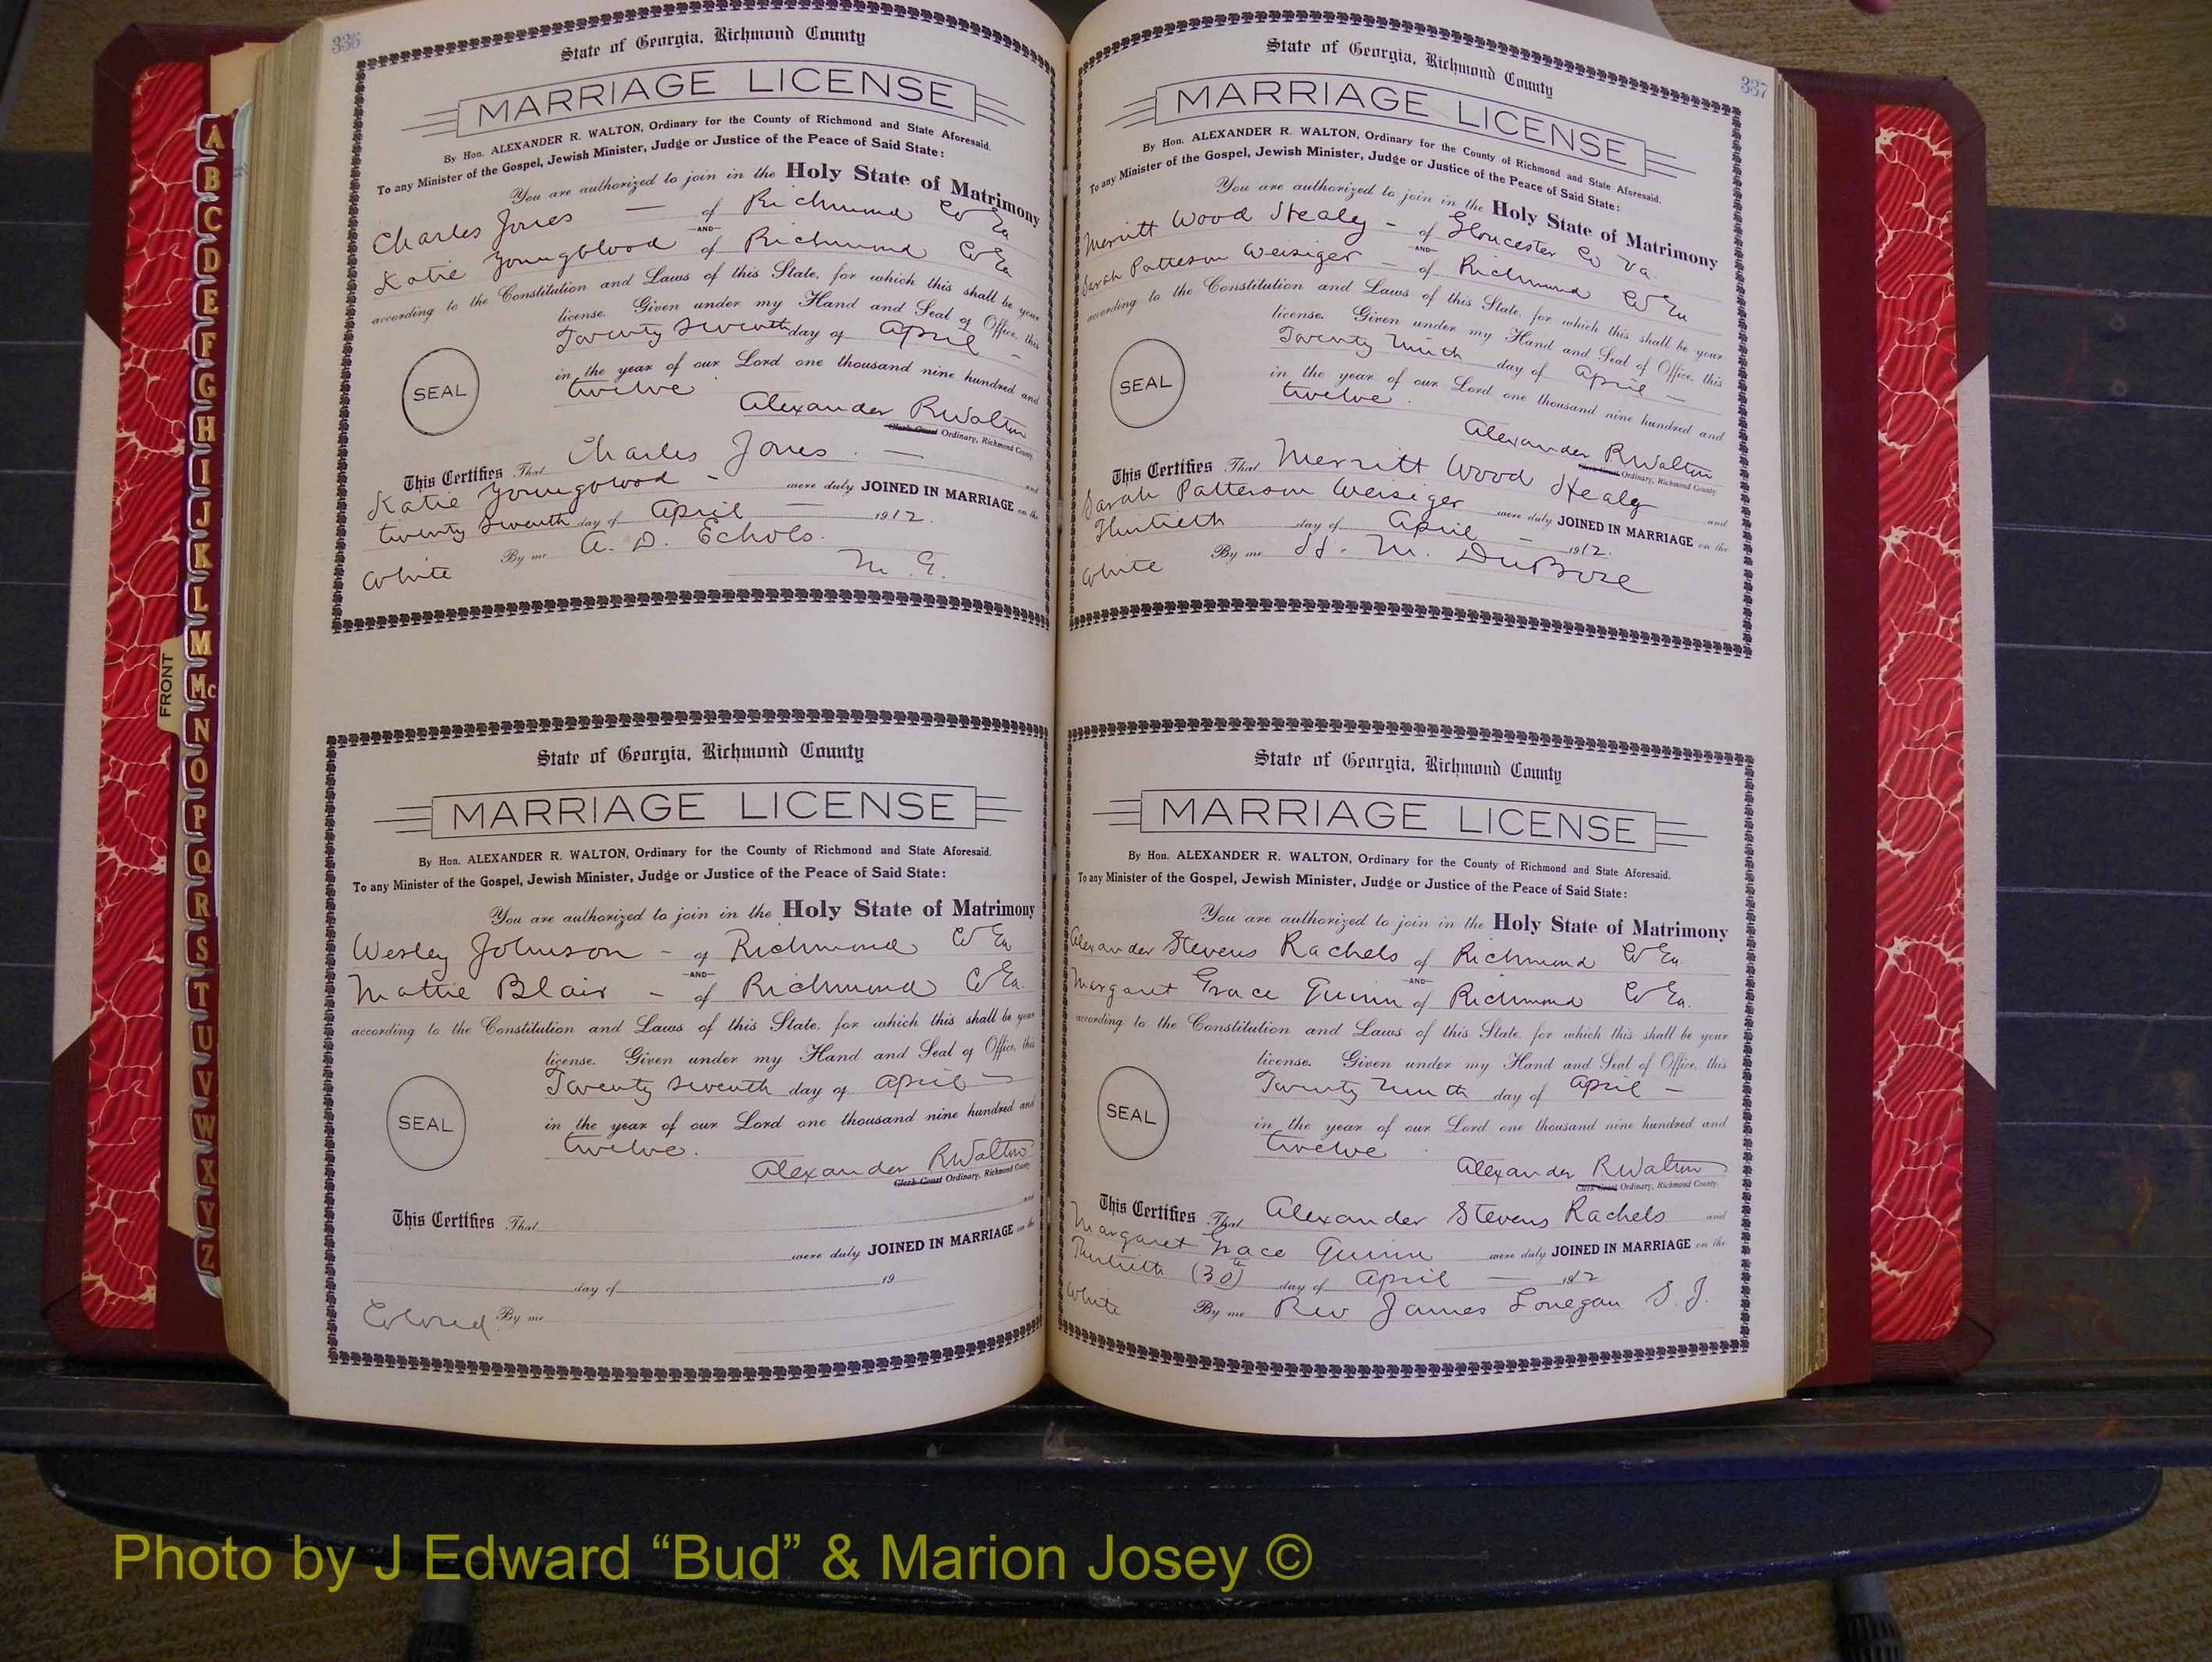 336
State of Georgia, Richmond County
MARRIAGE LICENSE
By Hon. ALEXANDER R. WALTON, Ordinary for the County of Richmond and State Aforesaid.
To any Minister of the Gospel, Jewish Minister, Judge or Justice of the Peace of Said State:
You are authorized to join in the Holy State of Matrimony
Charles Jones — of Richmond Co Ga
AND
Katie Youngblood of Richmond Co Ga
according to the Constitution and Laws of this State, for which this shall be your
license. Given under my Hand and Seal of Office, this
Twenty Seventh day of April —
in the year of our Lord one thousand nine hundred and
twelve
SEAL
Alexander R Walton
Clerk Court Ordinary, Richmond County.
This Certifies That Charles Jones. — and
Katie Youngblood - were duly JOINED IN MARRIAGE on the
twenty seventh day of April — 1912.
By me A. D. Echols.
White M. G.
State of Georgia, Richmond County
MARRIAGE LICENSE
By Hon. ALEXANDER R. WALTON, Ordinary for the County of Richmond and State Aforesaid.
To any Minister of the Gospel, Jewish Minister, Judge or Justice of the Peace of Said State:
You are authorized to join in the Holy State of Matrimony
Wesley Johnson - of Richmond Co Ga
AND
Mattie Blair - of Richmond Co Ga.
according to the Constitution and Laws of this State, for which this shall be your
license. Given under my Hand and Seal of Office, this
Twenty seventh day of April —
in the year of our Lord one thousand nine hundred and
twelve.
SEAL
Alexander R Walton
Clerk Court Ordinary, Richmond County
This Certifies That and
were duly JOINED IN MARRIAGE on the
day of 19
Colored By me
337
State of Georgia, Richmond County
MARRIAGE LICENSE
By Hon. ALEXANDER R. WALTON, Ordinary for the County of Richmond and State Aforesaid.
To any Minister of the Gospel, Jewish Minister, Judge or Justice of the Peace of Said State:
You are authorized to join in the Holy State of Matrimony
Merritt Wood Healy - of Gloucester Co Va
AND
Sarah Patterson Weisiger — of Richmond Co Ga
according to the Constitution and Laws of this State, for which this shall be your
license. Given under my Hand and Seal of Office, this
Twenty Ninth day of April —
in the year of our Lord one thousand nine hundred and
twelve.
SEAL
Alexander R Walton
Clerk Court Ordinary, Richmond County.
This Certifies That Merritt Wood Healy
Sarah Patterson Weisiger were duly JOINED IN MARRIAGE on the
and
Thirtieth day of April - 1912.
White By me H. M. DuBose
State of Georgia, Richmond County
MARRIAGE LICENSE
By Hon. ALEXANDER R. WALTON, Ordinary for the County of Richmond and State Aforesaid.
To any Minister of the Gospel, Jewish Minister, Judge or Justice of the Peace of Said State:
You are authorized to join in the Holy State of Matrimony
Alexander Stevens Rachels of Richmond Co Ga.
AND
Margaret Grace Quinn of Richmond Co Ga.
according to the Constitution and Laws of this State, for which this shall be your
license. Given under my Hand and Seal of Office, this
Twenty Ninth day of April —
in the year of our Lord one thousand nine hundred and
twelve
SEAL
Alexander R Walton
Clerk Court Ordinary, Richmond County.
This Certifies That Alexander Stevens Rachels and
Margaret Grace Quinn were duly JOINED IN MARRIAGE on the
Thirtieth (30th) day of April — 1912
White By me Rev James Lonegan S. J.
A
B
C
D
E
F
G
H
I
J
K
L
M
Mc
N
O
P
Q
R
S
T
U
V
W
X
Y
Z
FRONT
Photo by J Edward “Bud” & Marion Josey ©